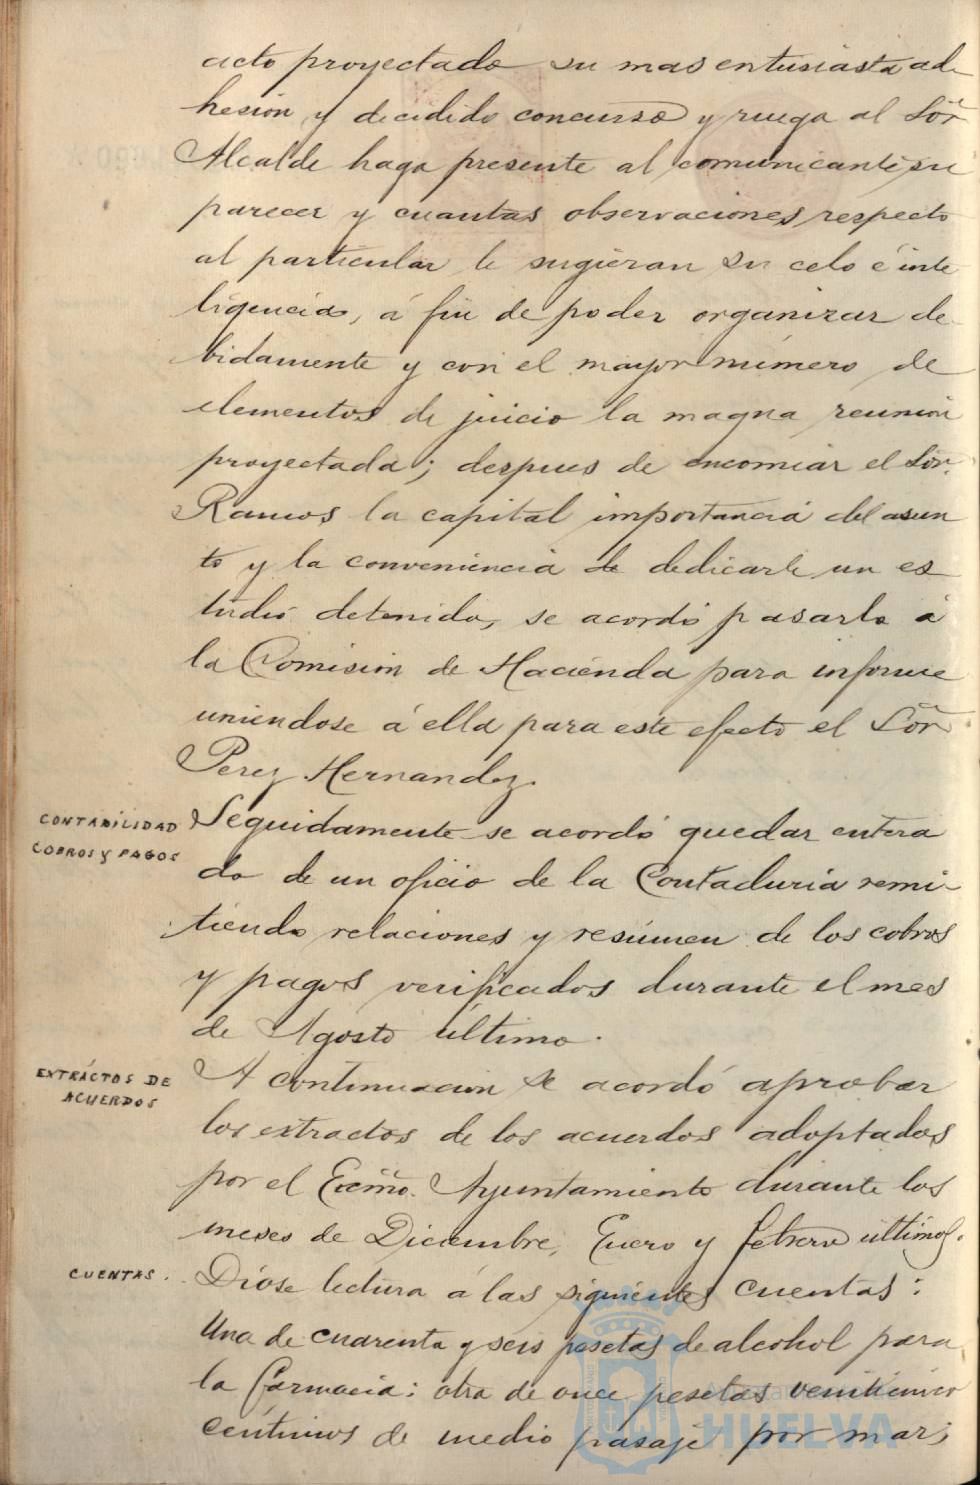 acto proyectado su mas entusiasta ad-
hesión y decidido concurso y ruega al Sör
Alcalde haga presente al comunicante su
parecer y cuantas observaciones respecto
al particular le sugieran su celo é inte
ligencia, á fin de poder organizar de
bidamente y con el mayor número de
elementos de juicio la magna reunion
proyectada; despues de encomiar el Sör.
Ramos la capital importancia del asun
to y la conveniencia de dedicarle un es
tudio detenido, se acordó pasarlo á
la Comisión de Hacienda para informe
uniendose á ella para este efecto el Sör
Perez Hernandez.
CONTABILIDAD
COBROS Y PAGOS
Seguidamente se acordó quedar entera
do de un oficio de la Contaduria remi-
tiendo relaciones y resúmen de los cobros
y pagos verificados durante el mes
de Agosto último.
EXTRACTOS DE
ACUERDOS
A continuacion se acordó aprobar
los extractos de los acuerdos adoptados
por el Excmo. Ayuntamiento durante los
meses de Diciembre, Enero y febrero últimos.
CUENTAS.
Dióse lectura á las siguientes cuentas:
Una de cuarenta y seis pesetas de alcohol para
la farmacia: otra de once pesetas veinticinco
centimos de medio pasaje por mar,
HUELVA